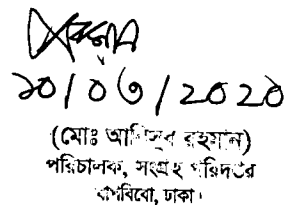 ১০/০৩/২০২০
(মোঃ আনিসুর রহমান)
পরিচালক, সংগ্রহ পরিদপ্তর
বাপবিবো, ঢাকা।